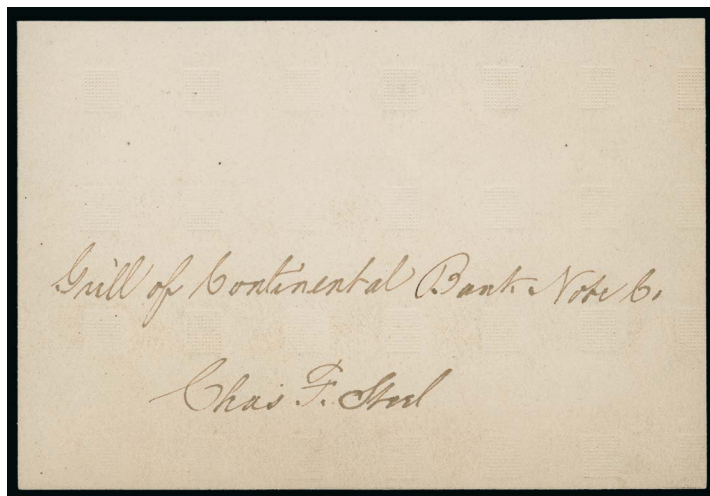 Grill of Continental Bank Note Co.
Chas F. Steel